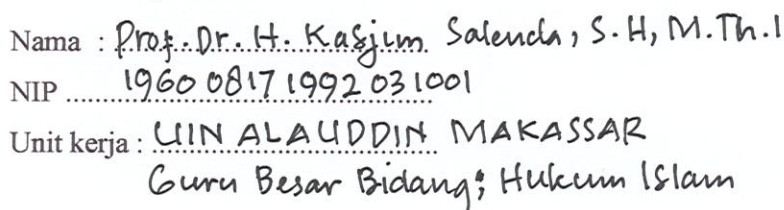 Nama : Prof. Dr. H. Kasjim Salenda, S.H, M.Th.I
NIP 19600817 199203 1001
Unit kerja : UIN ALAUDDIN MAKASSAR
Guru Besar Bidang; Hukum Islam